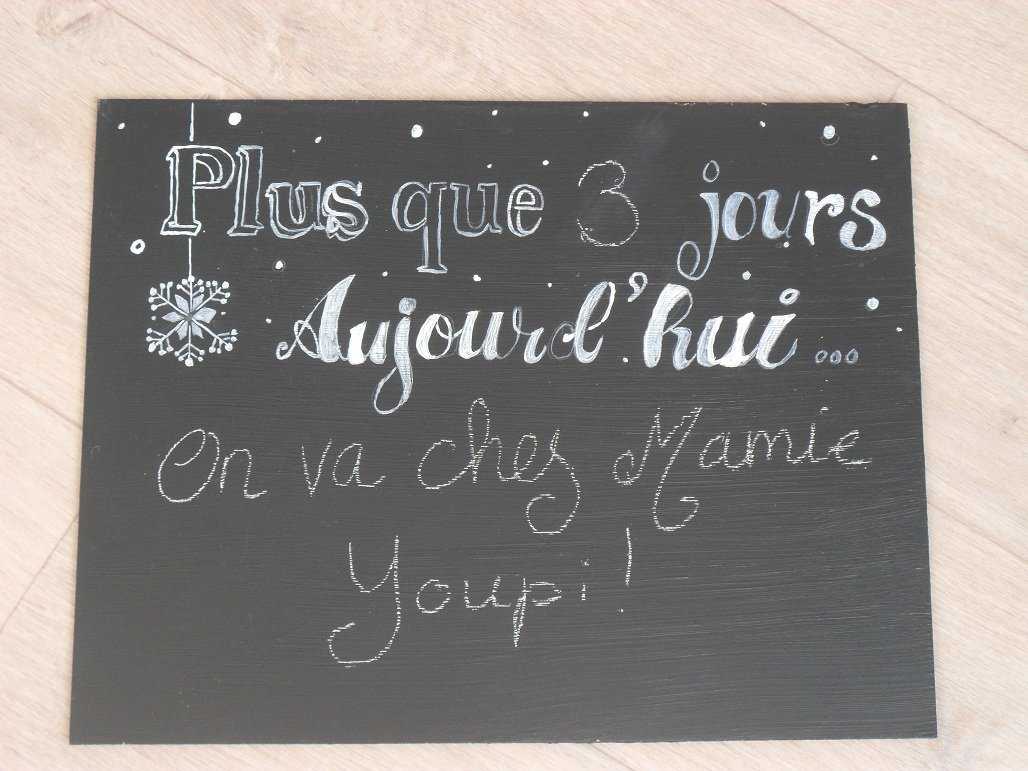 Plus que 3 jours
Aujourd'hui...
On va chez Mamie
Youpi!